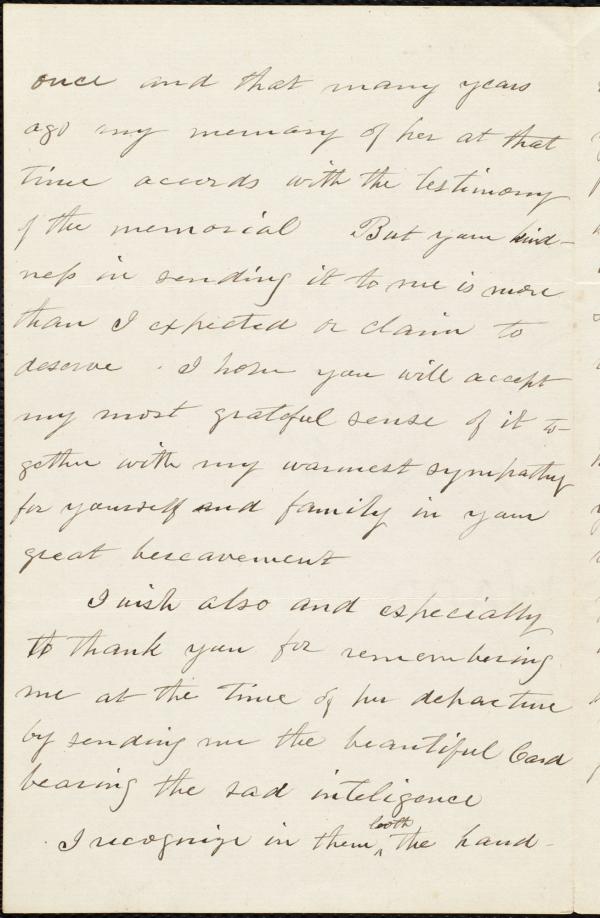 once and that many years
ago my memory of her at that
time accords with the testimony
of the memorial But your kind-
ness in sending it to me is more
than I expected or claim to
deserve. I hope you will accept
my most grateful sense of it to-
gether with my warmest sympathy
for yourself and family in your
great bereavement
I wish also and especially
to thank you for remembering
me at the time of her departure
by sending me the beautiful Card
bearing the sad inteligence
I recognize in them, both the hand-